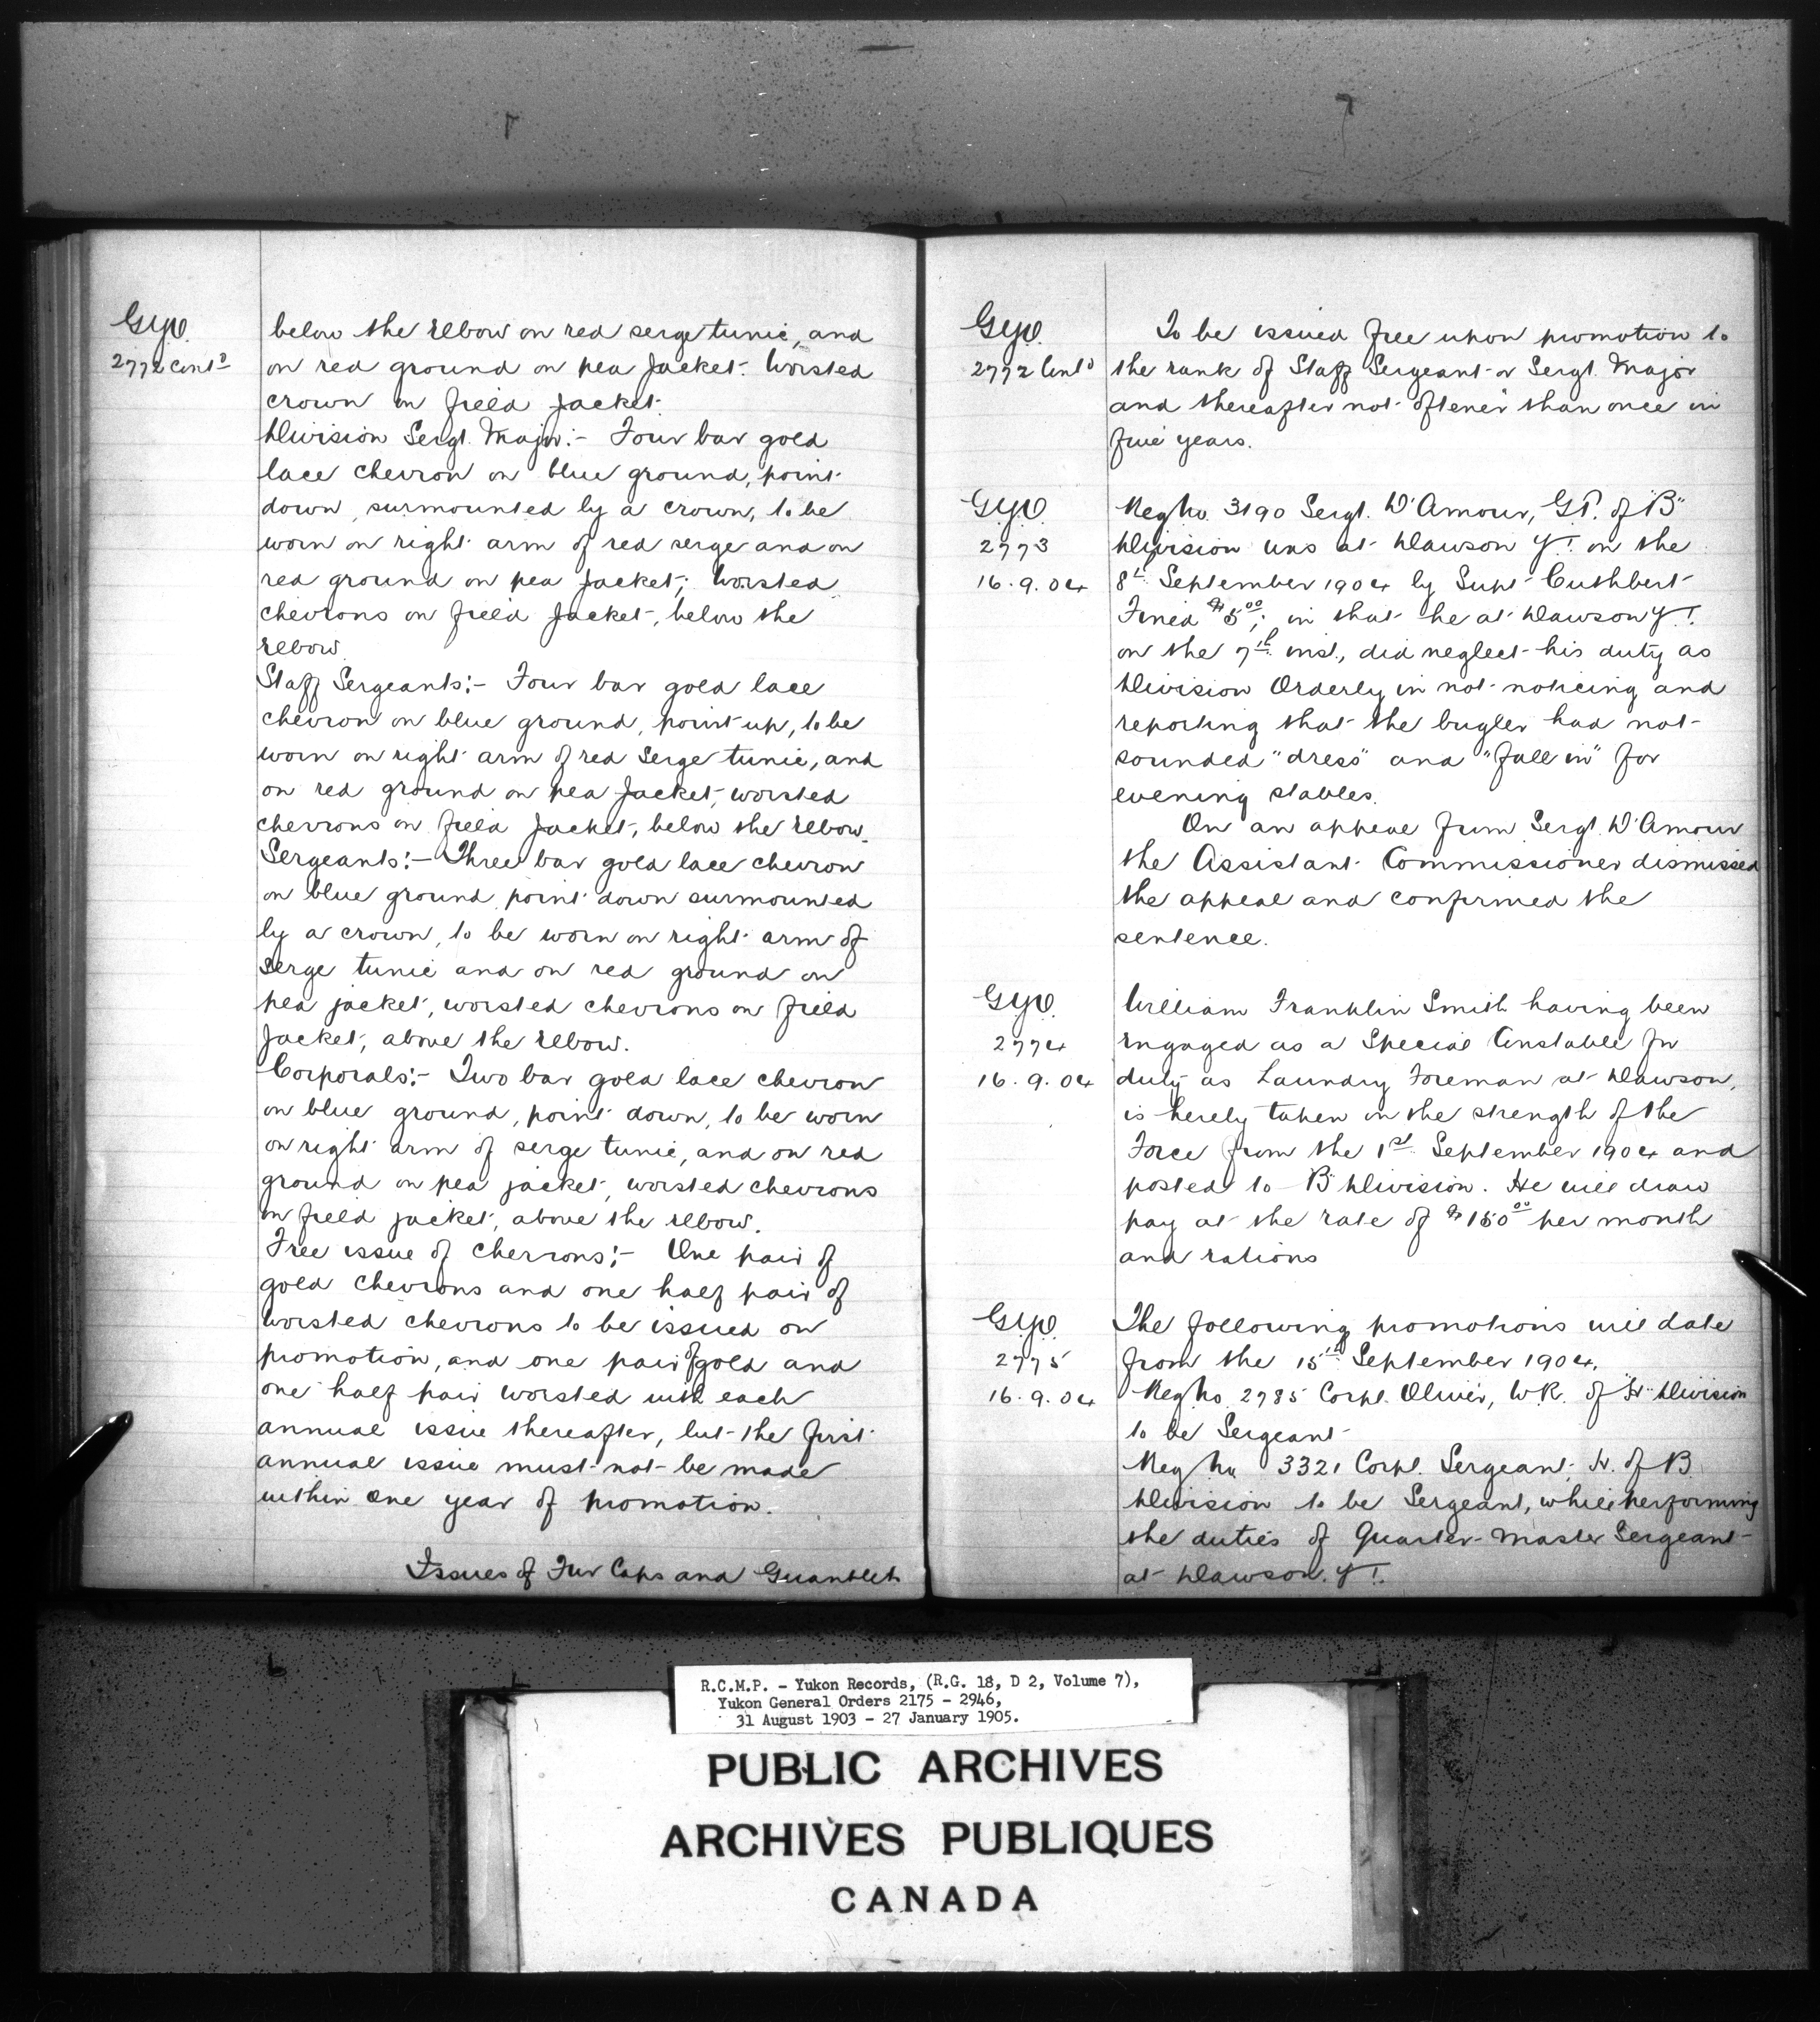 G.Y.O.
2772 Cont'd
below the elbow on red serge tunic, and
on red ground on pea Jacket. Worsted
crown on field Jacket.
Division Sergt. Major:- Four bar gold
lace chevron on blue ground, point
down, surmounted by a crown, to be
worn on right arm of red serge and on
red ground on pea Jacket; Worsted
chevrons on field Jacket, below the
elbow.
Staff Sergeants:- Four bar gold lace
chevron on blue ground, point up, to be
worn on right arm of red Serge tunic, and
on red ground on pea Jacket, worsted
chevrons on field Jacket, below the elbow.
Sergeants:- Three bar gold lace chevron
on blue ground point down surmounted
by a crown, to be worn on right arm of
Serge tunic and on red ground on
pea jacket, worsted chevrons on field
Jacket, above the elbow.
Corporals:- Two bar gold lace chevron
on blue ground, point down, to be worn
on right arm of serge tunic, and on red
ground on pea jacket, worsted chevrons
on field jacket, above the elbow.
Free issue of Chevrons:- One pair of
gold Chevrons and one half pair of
Worsted chevrons to be issued on
promotion, and one pair of gold and
one half pair Worsted with each
annual issue thereafter, but the first
annual issue must not be made
within one year of promotion.
Issues of Fur Caps and Guantlets
G.Y.O.
2772 Cont'd
To be issued free upon promotion to
the rank of Staff Sergeant or Sergt. Major
and thereafter not oftener than once in
five years.
G.Y.O.
2773
16.9.04
Reg No. 3190 Sergt. D'Amour, G.P. of "B"
Division was at Dawson Y.T. on the
8th September 1904 by Supt Cuthbert
Fined $5.00; in that he at Dawson Y.T.
on the 7th inst., did neglect his duty as
Division Orderly in not noticing and
reporting that the bugler had not
sounded "dress" and "fall in" for
evening stables.
On an appeal from Sergt. D'Amour
the Assistant Commissioner dismissed
the appeal and confirmed the
sentence.
G.Y.O.
2774
16.9.04
William Franklin Smith having been
engaged as a Special Constable for
duty as Laundry Foreman at Dawson,
is hereby taken on the strength of the
Force from the 1st September 1904 and
posted to "B" Division. He will draw
pay at the rate of $150.00 per month
and rations
G.Y.O.
2775
16.9.04
The following promotions will date
from the 15th September 1904.
Reg No. 2785 Corpl. Oliver, W.R. of "H" Division
to be Sergeant
Reg No 3321 Corpl. Sergeant, H. of B
Division to be Sergeant, while performing
the duties of Quarter-Master Sergeant
at Dawson. Y.T.
R.C.M.P. - Yukon Records, (R.G. 18, D 2, Volume 7),
Yukon General Orders 2175 - 2946,
31 August 1903 - 27 January 1905.
PUBLIC ARCHIVES
ARCHIVES PUBLIQUES
CANADA